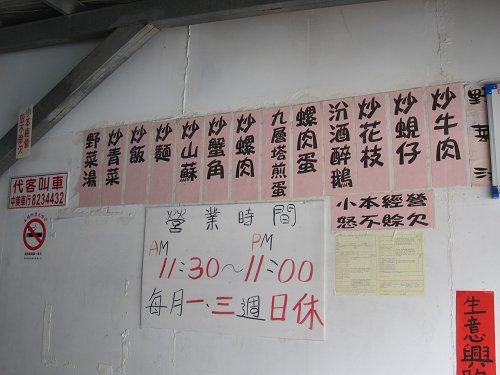 炒牛肉
炒蜆仔
炒花枝
汾酒醉鵝
螺肉蛋
九層塔煎蛋
炒螺肉
炒蟹角
炒山蘇
炒麵
炒飯
炒青菜
野菜湯
野菜
小本經營
恕不賒欠
代客叫車
中美車行8234432
小本經營
恕不賒欠
營業時間
AM PM
11:30~11:00
每月一、三週日休
生意興